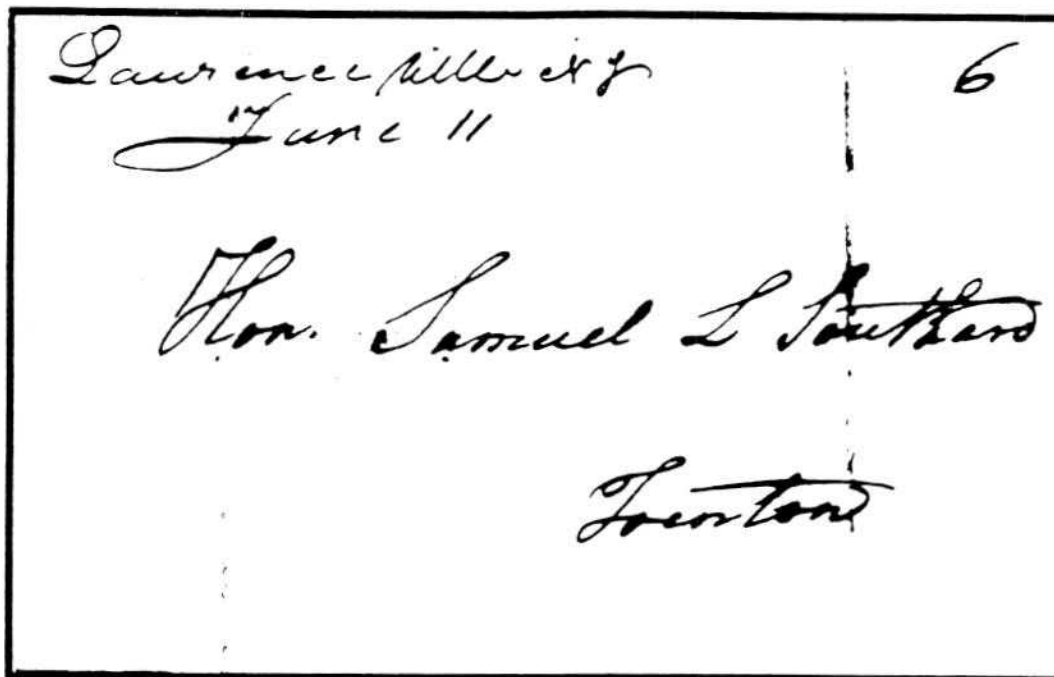 Lawrenceville NJ 6
June 11
Hon. Samuel L Southard
Trenton